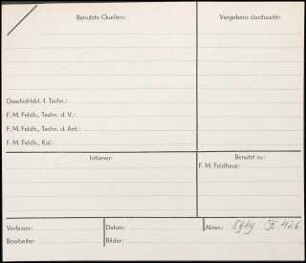 Benutzte Quellen:
Vergebens durchsucht:
Geschichtsbl. f. Techn.:
F. M. Feldh., Techn. d. V.:
F. M. Feldh., Techn. d. Ant.:
F. M. Feldh., Kal.:
Irrtümer:
Benutzt zu:
F. M. Feldhaus:
Verfasser:
Datum:
Akten: 426
Bearbeiter:
Bilder: